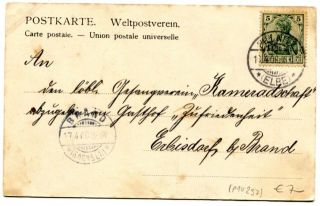 POSTKARTE. Weltpostverein.
Carte postale. — Union postale universelle
5 5
(ELBE)
An
den löbl. Gesangverein „Kameradschaft"
abzugeben Gasthof „Zufriedenheit"
Erbisdorf b/ Brand
(MW297)
€7-